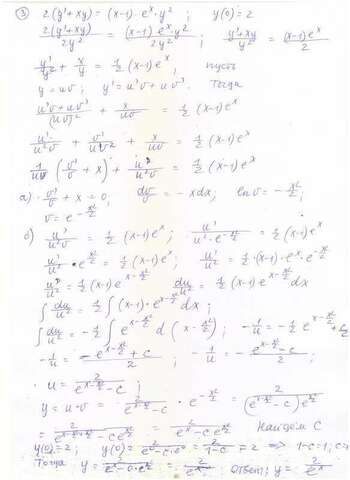 ③ 2(y'+xy) = (x-1)·eˣ·y²; y(0)=2
2(y'+xy)/2y² = (x-1)eˣ·y²/2y²; (y'+xy)/y² = (x-1)eˣ/2
y'/y² + x/y = 1/2 (x-1)·eˣ, пусть
y = uv; y' = u'v + uv'. Тогда
(u'v+uv')/(uv)² + x/uv = 1/2 (x-1)eˣ
u'/u²v + v'/uv² + x/uv = 1/2 (x-1)eˣ
1/uv (v'/v + x) + u'/u²v = 1/2 (x-1)eˣ
а) v'/v + x = 0; dv/v = -xdx; ln v = -x²/2;
v = e^(-x²/2)
б) u'/u²v = 1/2 (x-1)eˣ; u'/(u²·e^(-x²/2)) = 1/2 (x-1)eˣ
u'/u² · e^(x²/2) = 1/2 (x-1)eˣ; u'/u² = 1/2 (x-1)·eˣ·e^(-x²/2)
u'/u² = 1/2 (x-1)e^(x-x²/2) du/u² = 1/2 (x-1)e^(x-x²/2) dx
∫ du/u² = 1/2 ∫ (x-1)·e^(x-x²/2) dx;
∫ du/u² = -1/2 ∫ e^(x-x²/2) d(x-x²/2); -1/u = -1/2 e^(x-x²/2) + c/2
-1/u = (-e^(x-x²/2)+c)/2; -1/u = -(e^(x-x²/2)-c)/2
u = 2/(e^(x-x²/2)-c);
y = u·v = 2/(e^(x-x²/2)-c) · e^(-x²/2) = 2/((e^(x-x²/2)-c)e^(x²/2))
= 2/(e^(x-x²/2+x²/2) - ce^(x²/2)) = 2/(eˣ-ce^(x²/2)) Найдем C
y(0)=2; y(0) = 2/(e⁰-c·e⁰) = 2/(1-c) = 2 => 1-c=1; c=
Тогда y = 2/(eˣ-0·e^(x²/2)) = 2/eˣ. Ответ: y = 2/eˣ